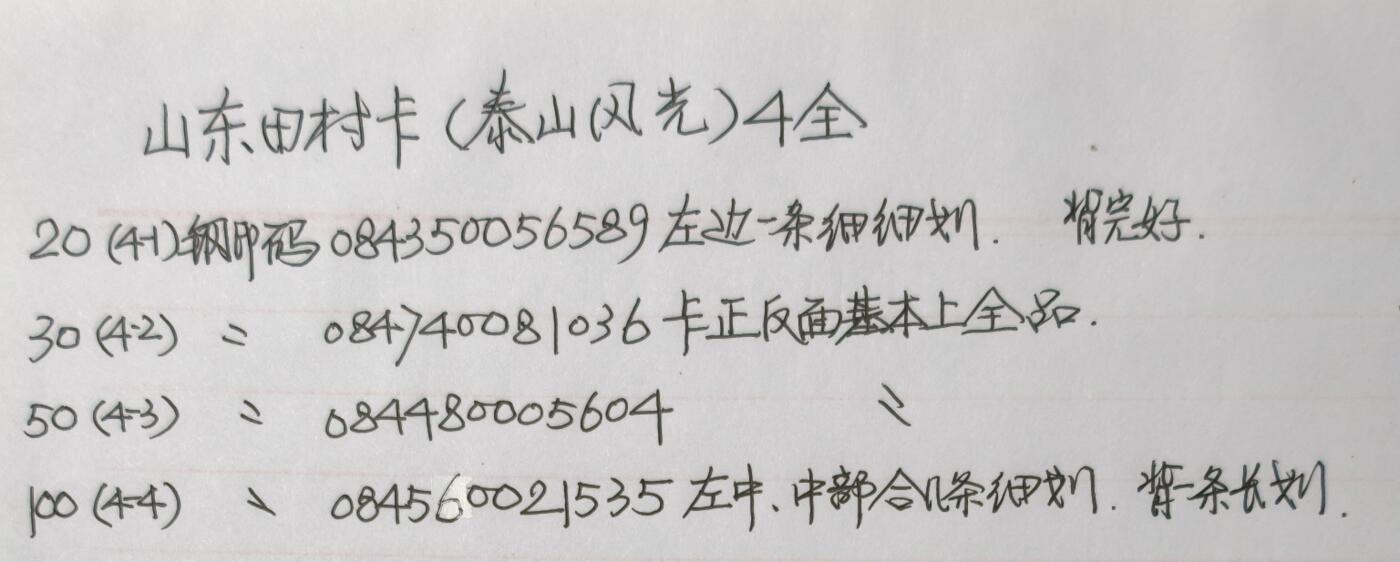 山东田村卡(泰山风光)4全
20(4-1)钢印码 084350056589 左边一条细细划. 背完好.
30(4-2) 〃 084740081036 卡正反面基本上全品.
50(4-3) 〃 084480005604 〃
100(4-4) 〃 084560021535 左中、中部合几条细划. 背一条长划.